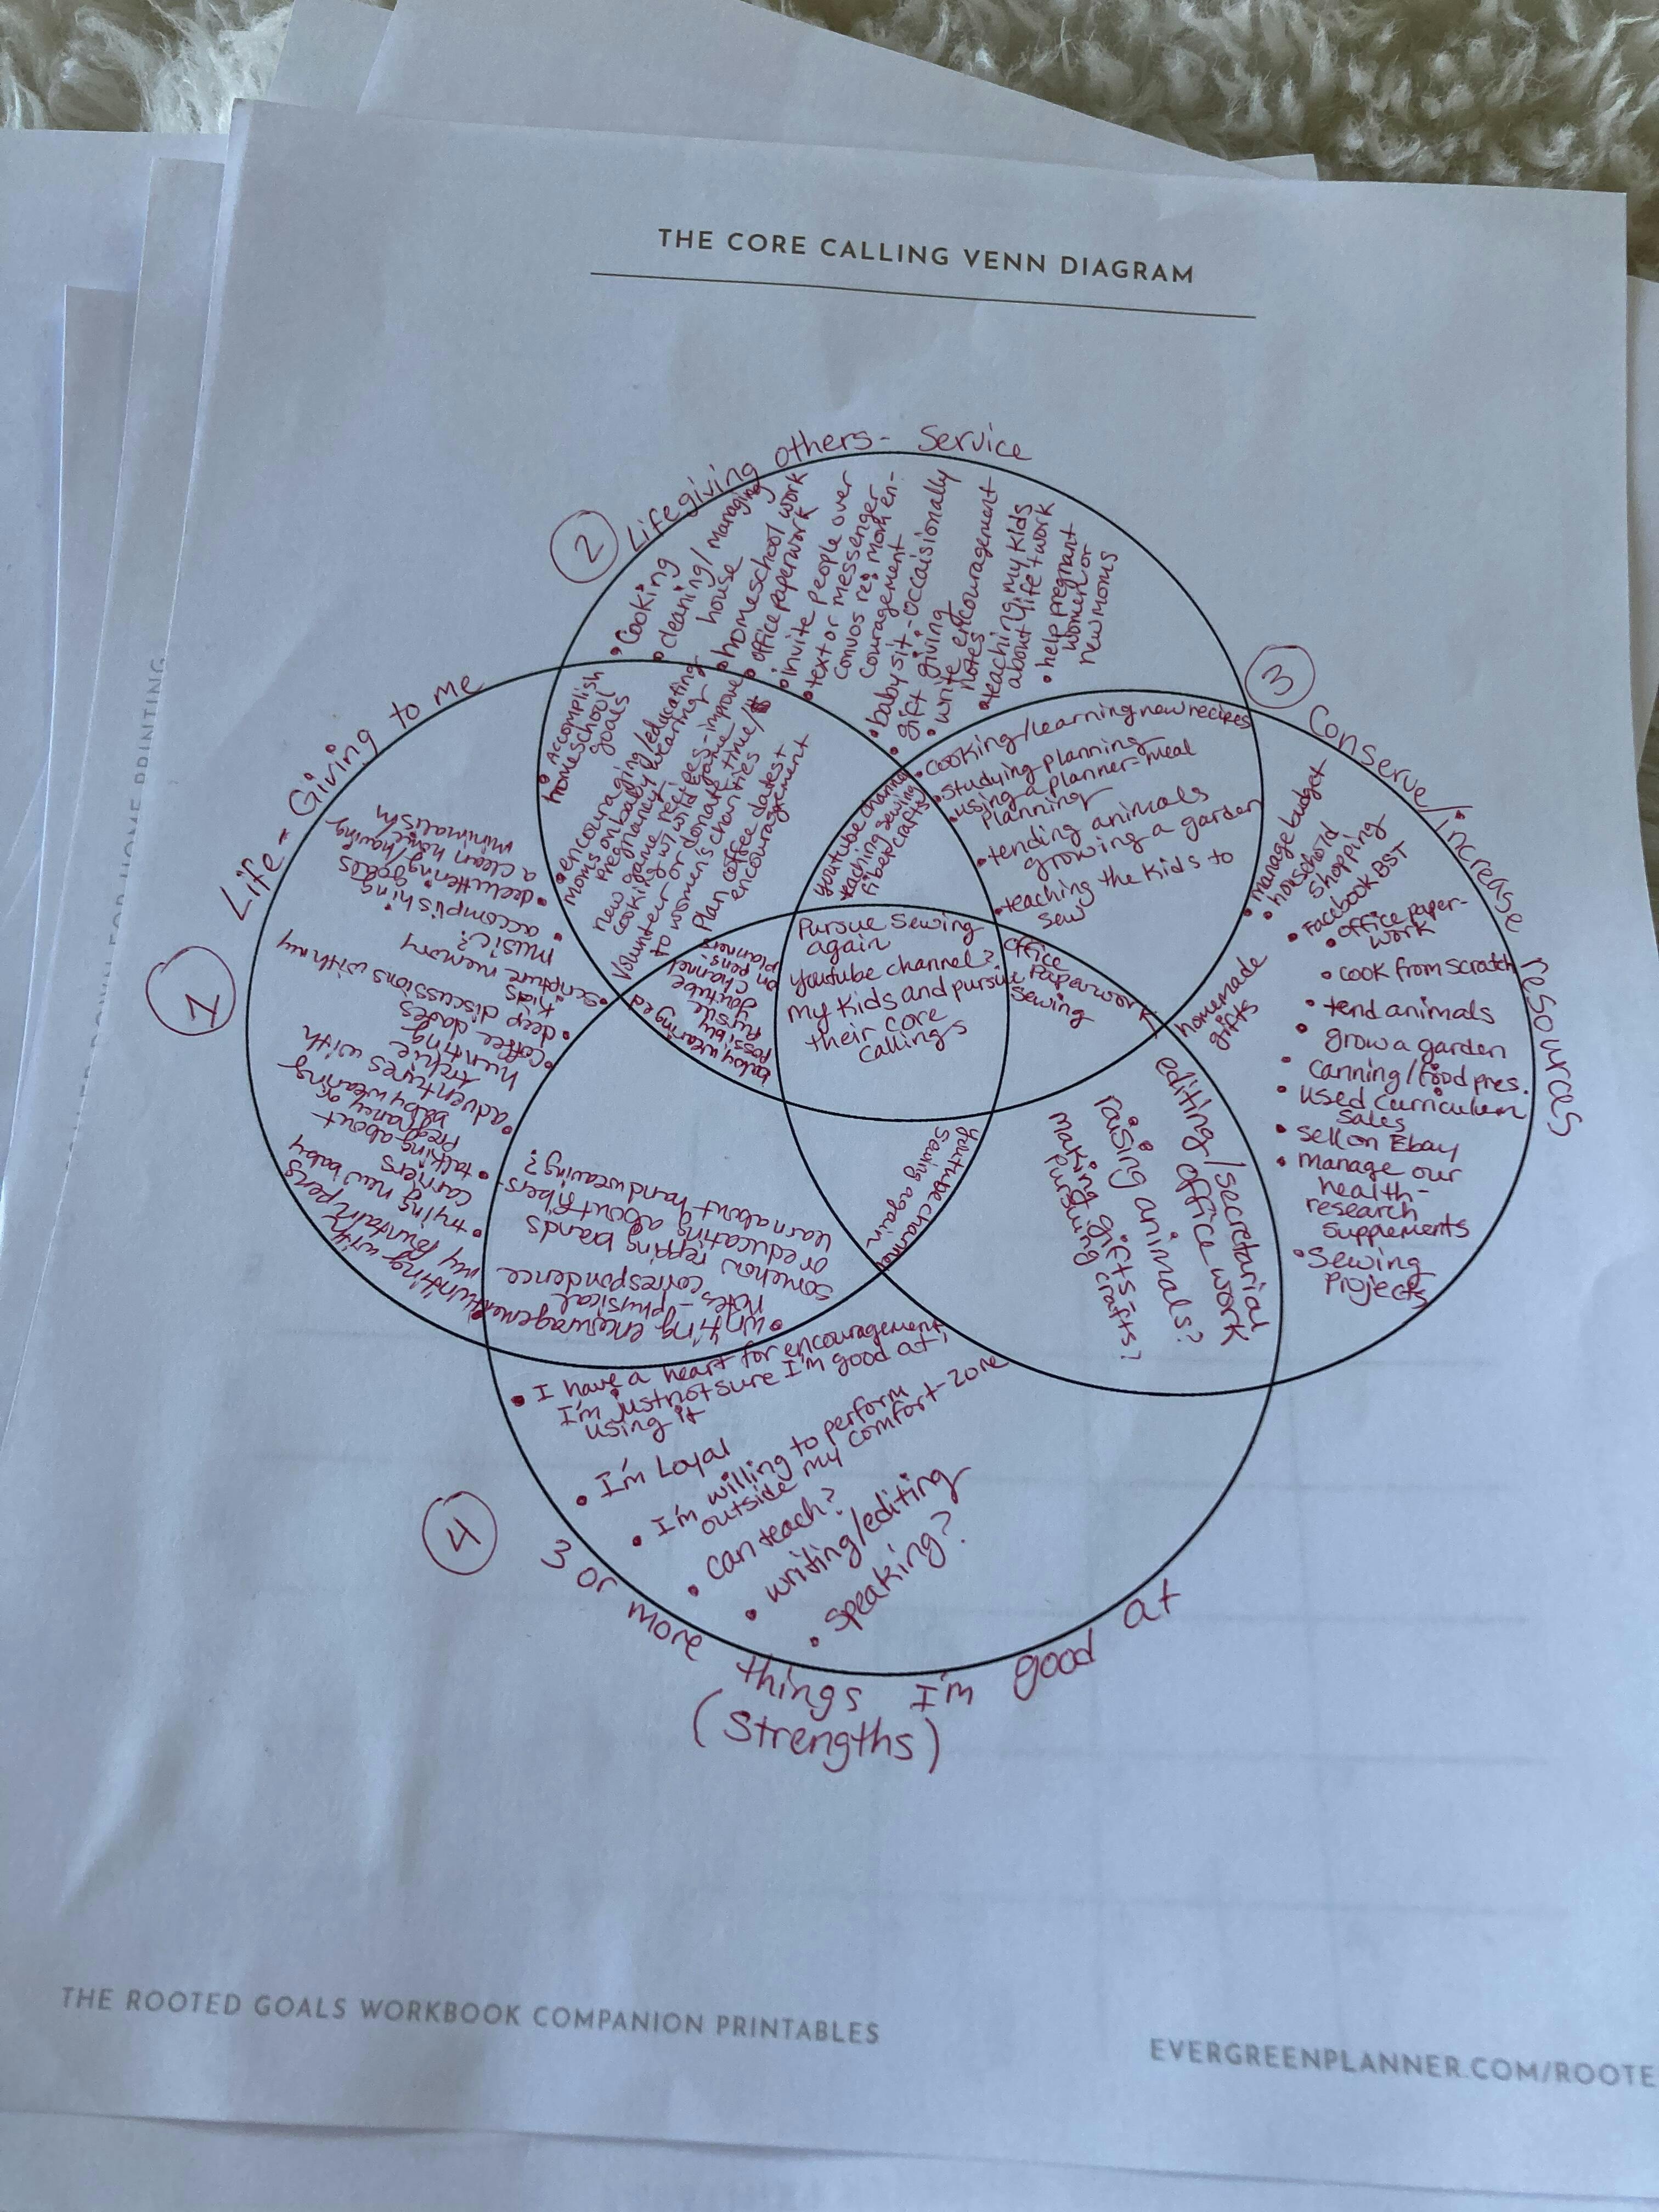 THE CORE CALLING VENN DIAGRAM
2
Lifegiving others- Service
• Cooking
• cleaning/managing
house
• homeschool work
• office paperwork
• invite people over
• text or messenger
convos re: mom en-
couragement
• babysit - occaisionally
• gift giving
• write encouragement
notes
• teaching my kids
about life + work
• help pregnant
women or
new moms
1
Life-Giving to me
• decluttering/having
a clean home
minimalism
• accomplishing
goals
• scripture memory
music?
• deep discussions with my
kids
• coffee dates
• adventures with
Archie
hunting
• talking about
pregnancy or
baby wearing
• trying new baby
carriers
• writing with
my fountain pens
• Accomplish
homeschool
goals
• encouraging/educating
moms on babywearing
pregnancy
new game recipes-improve
cooking w/ wild game
Volunteer or donate time/$
to women's charities
plan coffee dates +
encouragement
3
Conserve/increase resources
• manage budget
• household
shopping
• Facebook BST
• office paper-
work
• cook from scratch
• tend animals
• grow a garden
• canning/food pres.
• used curriculum
sales
• sell on Ebay
• manage our
health-
research
supplements
• Sewing
Projects
homemade
gifts
• cooking/learning new recipes
• studying-planning
• using a planner-meal
planning
• tending animals
growing a garden
• teaching the kids to
sew
youtube channel
teaching sewing
fibercrafts
Pursue sewing
again
youtube channel?
my kids and pursue
their core
callings
office
paperwork
sewing
baby wearing ed
possibly
pursue
youtube
channel
on pens-
planners
youtube channel
sewing again
• writing encouragement
notes - physical
correspondence
somehow repping brands
or educating about fibers-
learn about handweaving?
editing/secretarial
office work
raising animals?
making gifts-
pursuing crafts?
4
3 or more things I'm good at
(Strengths)
• I have a heart for encouragement,
I'm just not sure I'm good at
using it
• I'm Loyal
• I'm willing to perform
outside my comfort-zone
• can teach?
• writing/editing
• speaking?
THE ROOTED GOALS WORKBOOK COMPANION PRINTABLES
EVERGREENPLANNER.COM/ROOTE